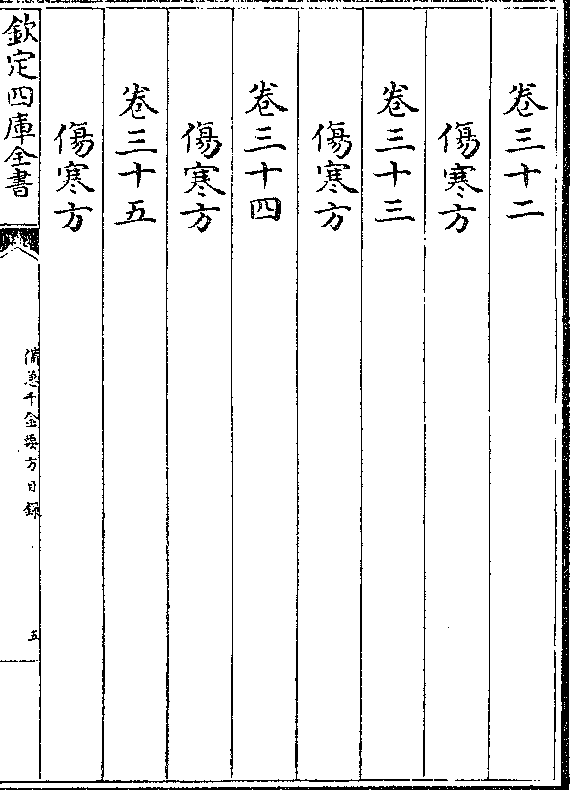 卷三十二
傷寒方
卷三十三
傷寒方
卷三十四
傷寒方
卷三十五
傷寒方
欽定四庫全書
備急千金要方目録
五